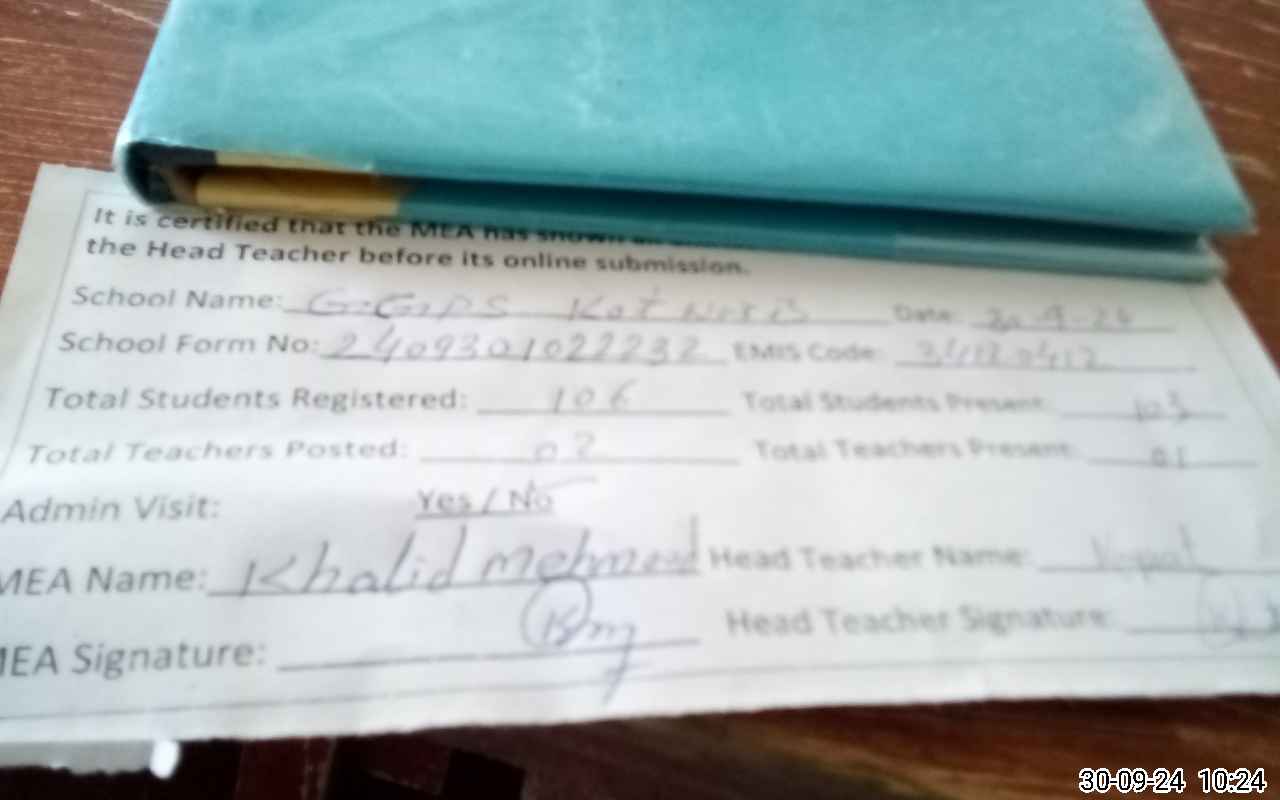 It is certified that the MEA has shown
the Head Teacher before its online submission.
School Name: G.GPS Kot Date: 30-9-24
School Form No: 2409301022232 EMIS Code:
Total Students Registered: 106 Total Students Present: 103
Total Teachers Posted: 02 Total Teachers Present: 01
Admin Visit: Yes / No
MEA Name: Khalid mehmood Head Teacher Name:
MEA Signature: Head Teacher Signature:
30-09-24 10:24